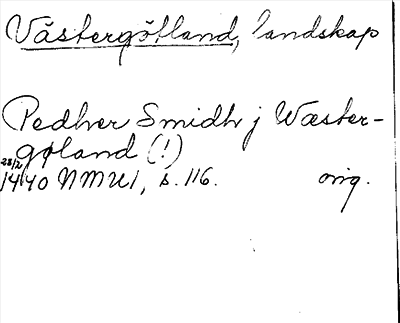 Västergötland, landskap
Pedher Smidh j Wæster-
gøland (!)
28/2
1440 NMU1, s. 116. orig.